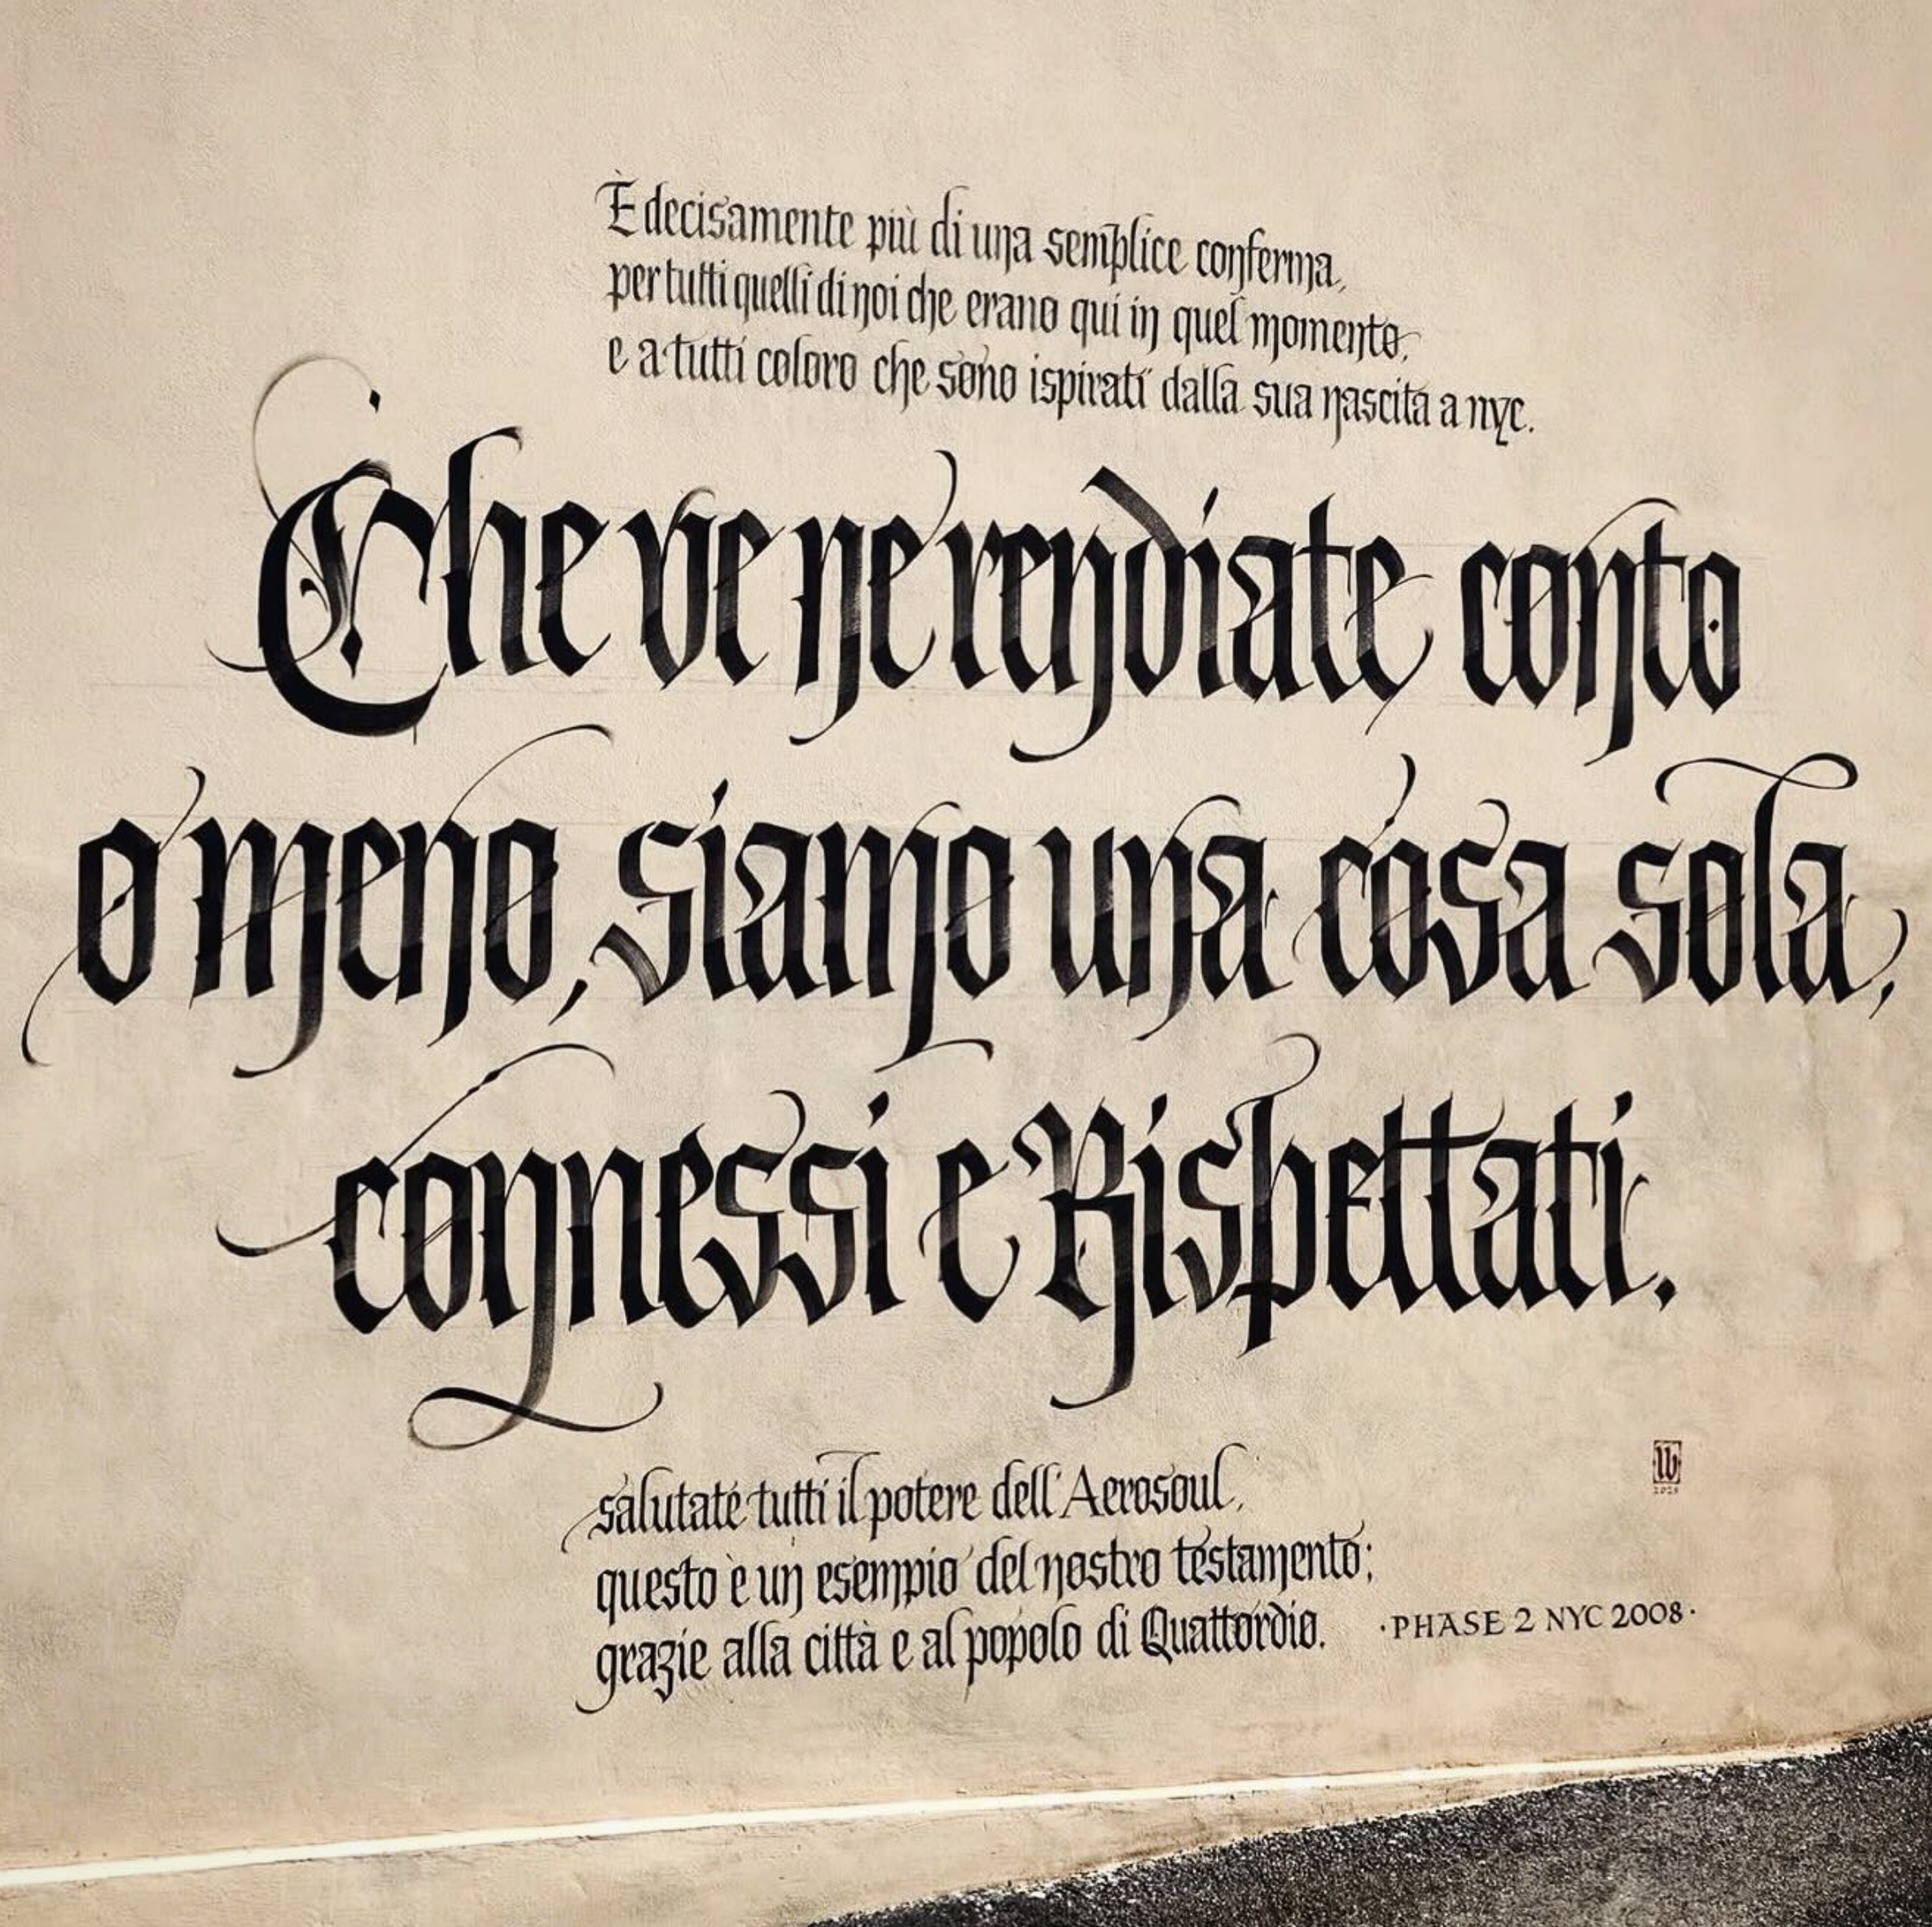 È decisamente più di una semplice conferma,
per tutti quelli di noi che erano qui in quel momento,
e a tutti coloro che sono ispirati dalla sua nascita a nyc.
Che ve ne rendiate conto
o meno, siamo una cosa sola,
connessi e Rispettati.
salutate tutti il potere dell'Aerosoul,
questo è un esempio del nostro testamento;
grazie alla città e al popolo di Quattordio.
·PHASE 2 NYC 2008·
lb